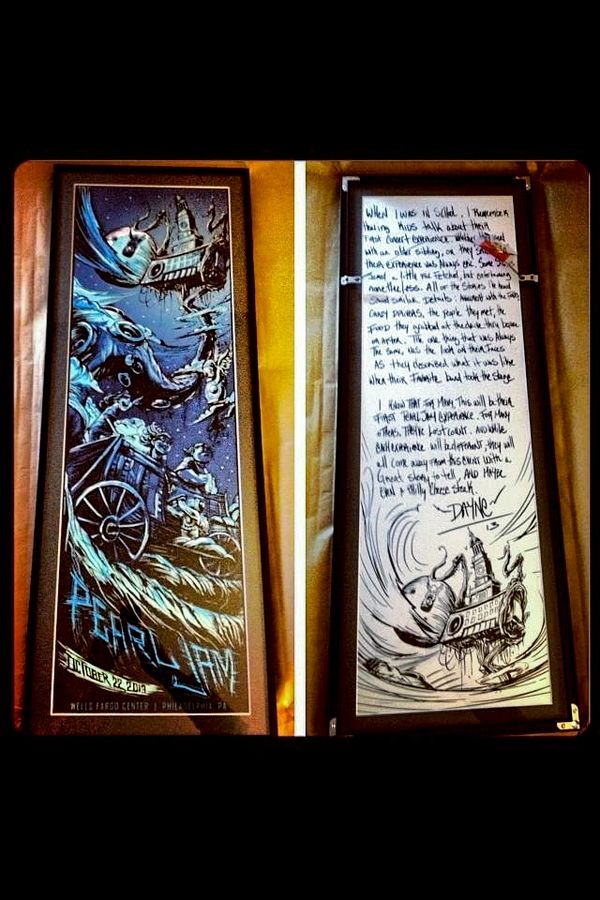 PEARL JAM
OCTOBER 22, 2013
WELLS FARGO CENTER | PHILADELPHIA, PA
WHEN I WAS IN SCHOOL, I REMEMBER
HEARING KIDS TALK ABOUT THEIR
FIRST CONCERT EXPERIENCE. WHETHER
WITH AN OLDER SIBLING, OR THEY
THEIR EXPERIENCE WAS ALWAYS SOME
A LITTLE FAR FETCHED, BUT ENTERTAINING
NONE THE LESS. ALL OF THE STORIES I'D HEARD
SIMILAR DETAILS: WITH THE
CRAZY THE PEOPLE THEY MET, THE
FOOD THEY GRABBED AT THE THEY BEFORE
OR AFTER. THE ONE THING THAT WAS ALWAYS
THE SAME, WAS THE LOOK ON THEIR FACES
AS THEY DESCRIBED WHAT IT WAS LIKE
WHEN THEIR FAVORITE BAND TOOK THE STAGE.
I KNOW THAT FOR MANY THIS WILL BE THEIR
FIRST PEARL JAM EXPERIENCE. FOR MANY
OTHERS, THEY'VE LOST COUNT. AND WHILE
EACH EXPERIENCE WILL BE DIFFERENT, THEY WILL
ALL COME AWAY FROM THIS WITH A
GREAT STORY TO TELL, AND MAYBE
EVEN A PHILLY CHEESE STEAK.
-DAYNE
13